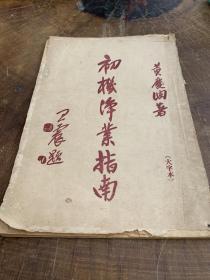 黃慶瀾著
初機淨業指南
王震題
(大字本)